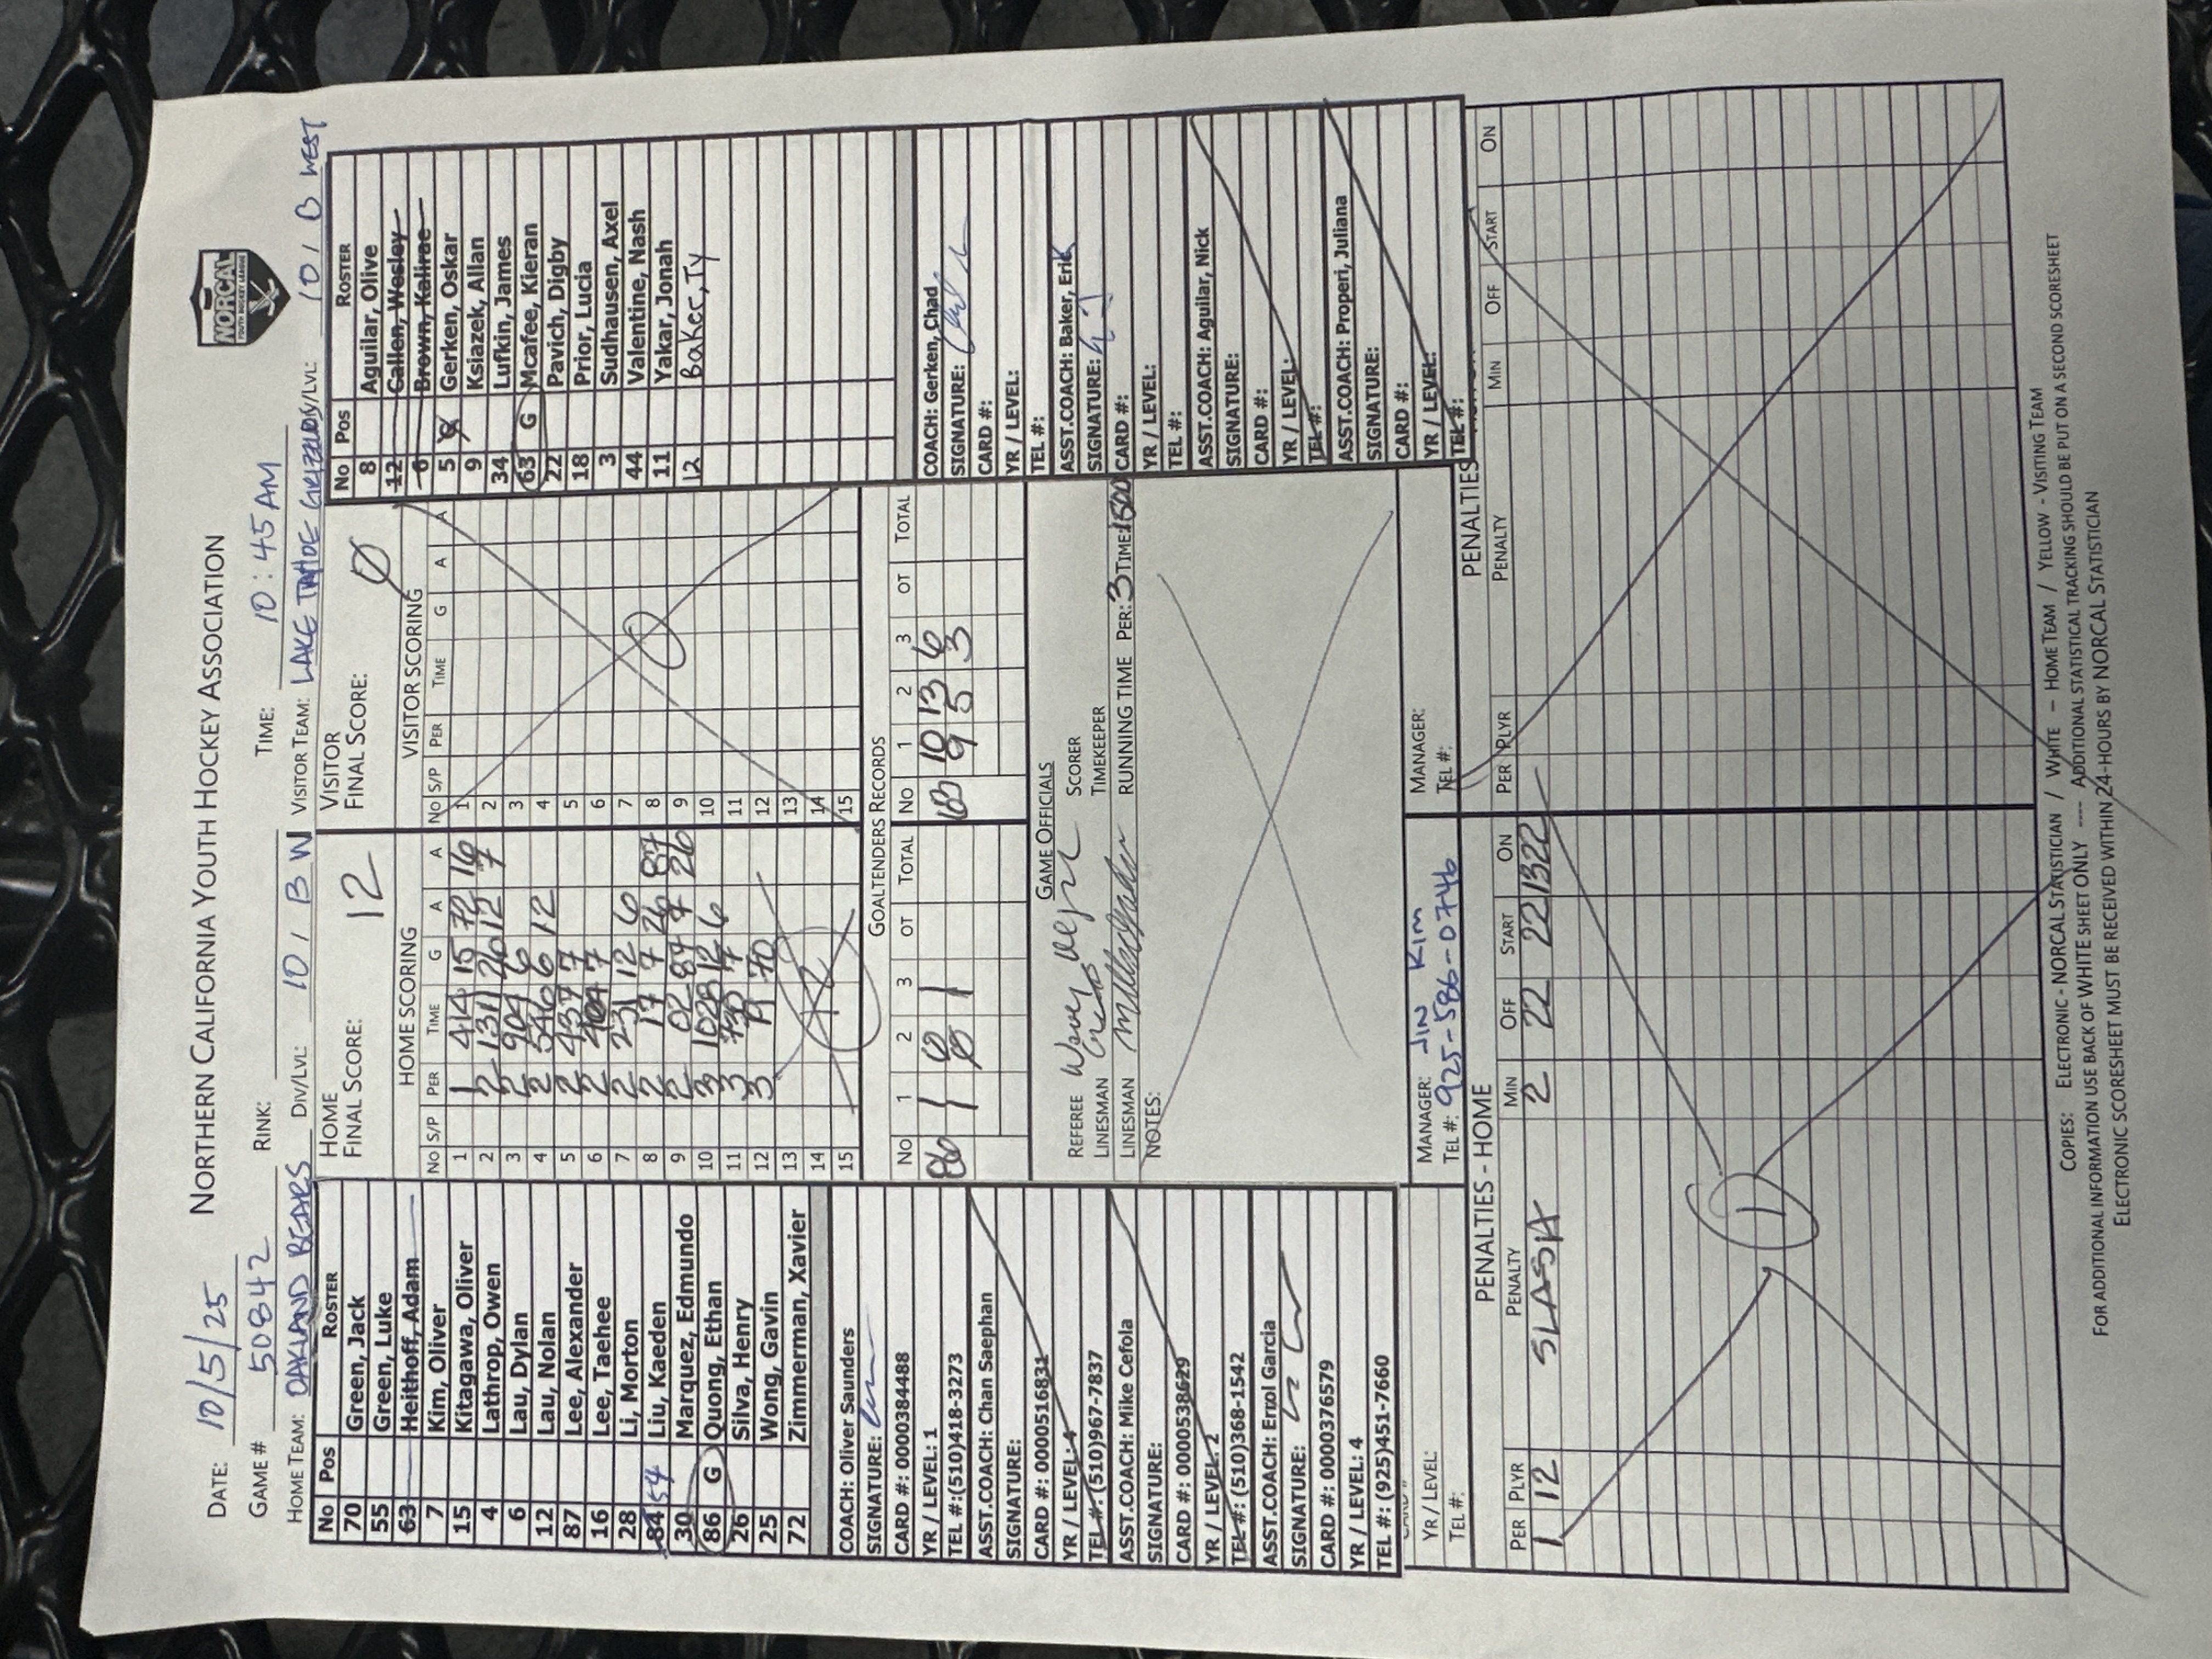 DATE: 10/5/25 NORTHERN CALIFORNIA YOUTH HOCKEY ASSOCIATION
NORCAL
YOUTH HOCKEY LEAGUE
GAME # 50842 RINK: TIME: 10:45 AM
HOME TEAM: OAKLAND BEARS DIV/LVL: 10 / B W VISITOR TEAM: LAKE TAHOE GRIZZLIES DIV/LVL: 10 / B WEST
No Pos ROSTER
70 Green, Jack
55 Green, Luke
63 Heithoff, Adam
7 Kim, Oliver
15 Kitagawa, Oliver
4 Lathrop, Owen
6 Lau, Dylan
12 Lau, Nolan
87 Lee, Alexander
16 Lee, Taehee
28 Li, Morton
84 54 Liu, Kaeden
30 Marquez, Edmundo
86 G Quong, Ethan
26 Silva, Henry
25 Wong, Gavin
72 Zimmerman, Xavier
COACH: Oliver Saunders
SIGNATURE:
CARD #: 0000384488
YR / LEVEL: 1
TEL #:(510)418-3273
ASST.COACH: Chan Saephan
SIGNATURE:
CARD #: 0000516831
YR / LEVEL: 4
TEL #: (510)967-7837
ASST.COACH: Mike Cefola
SIGNATURE:
CARD #: 0000538629
YR / LEVEL: 2
TEL #: (510)368-1542
ASST.COACH: Errol Garcia
SIGNATURE:
CARD #: 0000376579
YR / LEVEL: 4
TEL #: (925)451-7660
YR / LEVEL:
TEL #:
HOME
FINAL SCORE: 12
HOME SCORING
NO S/P PER TIME G A A
1 1 414 15 72 16
2 2 1311 26 12 7
3 2 904 6
4 2 546 6 12
5 2 437 7
6 2 7
7 2 231 12 6
8 2 17 7 26 87
9 2 02 87 7 26
10 3 1028 12 6
11 3
12 3 70
13
14
15
VISITOR
FINAL SCORE: 0
VISITOR SCORING
NO S/P PER TIME G A A
1
2
3
4
5
6
7
8
9
10
11
12
13
14
15
GOALTENDERS RECORDS
NO 1 2 3 OT TOTAL NO 1 2 3 OT TOTAL
86 1 0 1 63 10 13 6
9 5 3
GAME OFFICIALS
REFEREE SCORER
LINESMAN TIMEKEEPER
LINESMAN RUNNING TIME PER: 3 TIME: 1500
NOTES:
MANAGER: JIN KIM
TEL #: 925-586-0746
MANAGER:
TEL #:
No Pos ROSTER
8 Aguilar, Olive
12 Callen, Wesley
6 Brown, Kalirae
5 Gerken, Oskar
9 Ksiazek, Allan
34 Lufkin, James
63 G Mcafee, Kieran
22 Pavich, Digby
18 Prior, Lucia
3 Sudhausen, Axel
44 Valentine, Nash
11 Yakar, Jonah
12 Baker, Ty
COACH: Gerken, Chad
SIGNATURE:
CARD #:
YR / LEVEL:
TEL #:
ASST.COACH: Baker, Erik
SIGNATURE:
CARD #:
YR / LEVEL:
TEL #:
ASST.COACH: Aguilar, Nick
SIGNATURE:
CARD #:
YR / LEVEL:
TEL #:
ASST.COACH: Properi, Juliana
SIGNATURE:
CARD #:
YR / LEVEL:
TEL #:
PENALTIES - HOME
PER PLYR PENALTY MIN OFF START ON
1 12 SLASH 2 22 22 1322
PENALTIES
PER PLYR PENALTY MIN OFF START ON
COPIES: ELECTRONIC - NORCAL STATISTICIAN / WHITE – HOME TEAM / YELLOW - VISITING TEAM
FOR ADDITIONAL INFORMATION USE BACK OF WHITE SHEET ONLY ---- ADDITIONAL STATISTICAL TRACKING SHOULD BE PUT ON A SECOND SCORESHEET
ELECTRONIC SCORESHEET MUST BE RECEIVED WITHIN 24-HOURS BY NORCAL STATISTICIAN